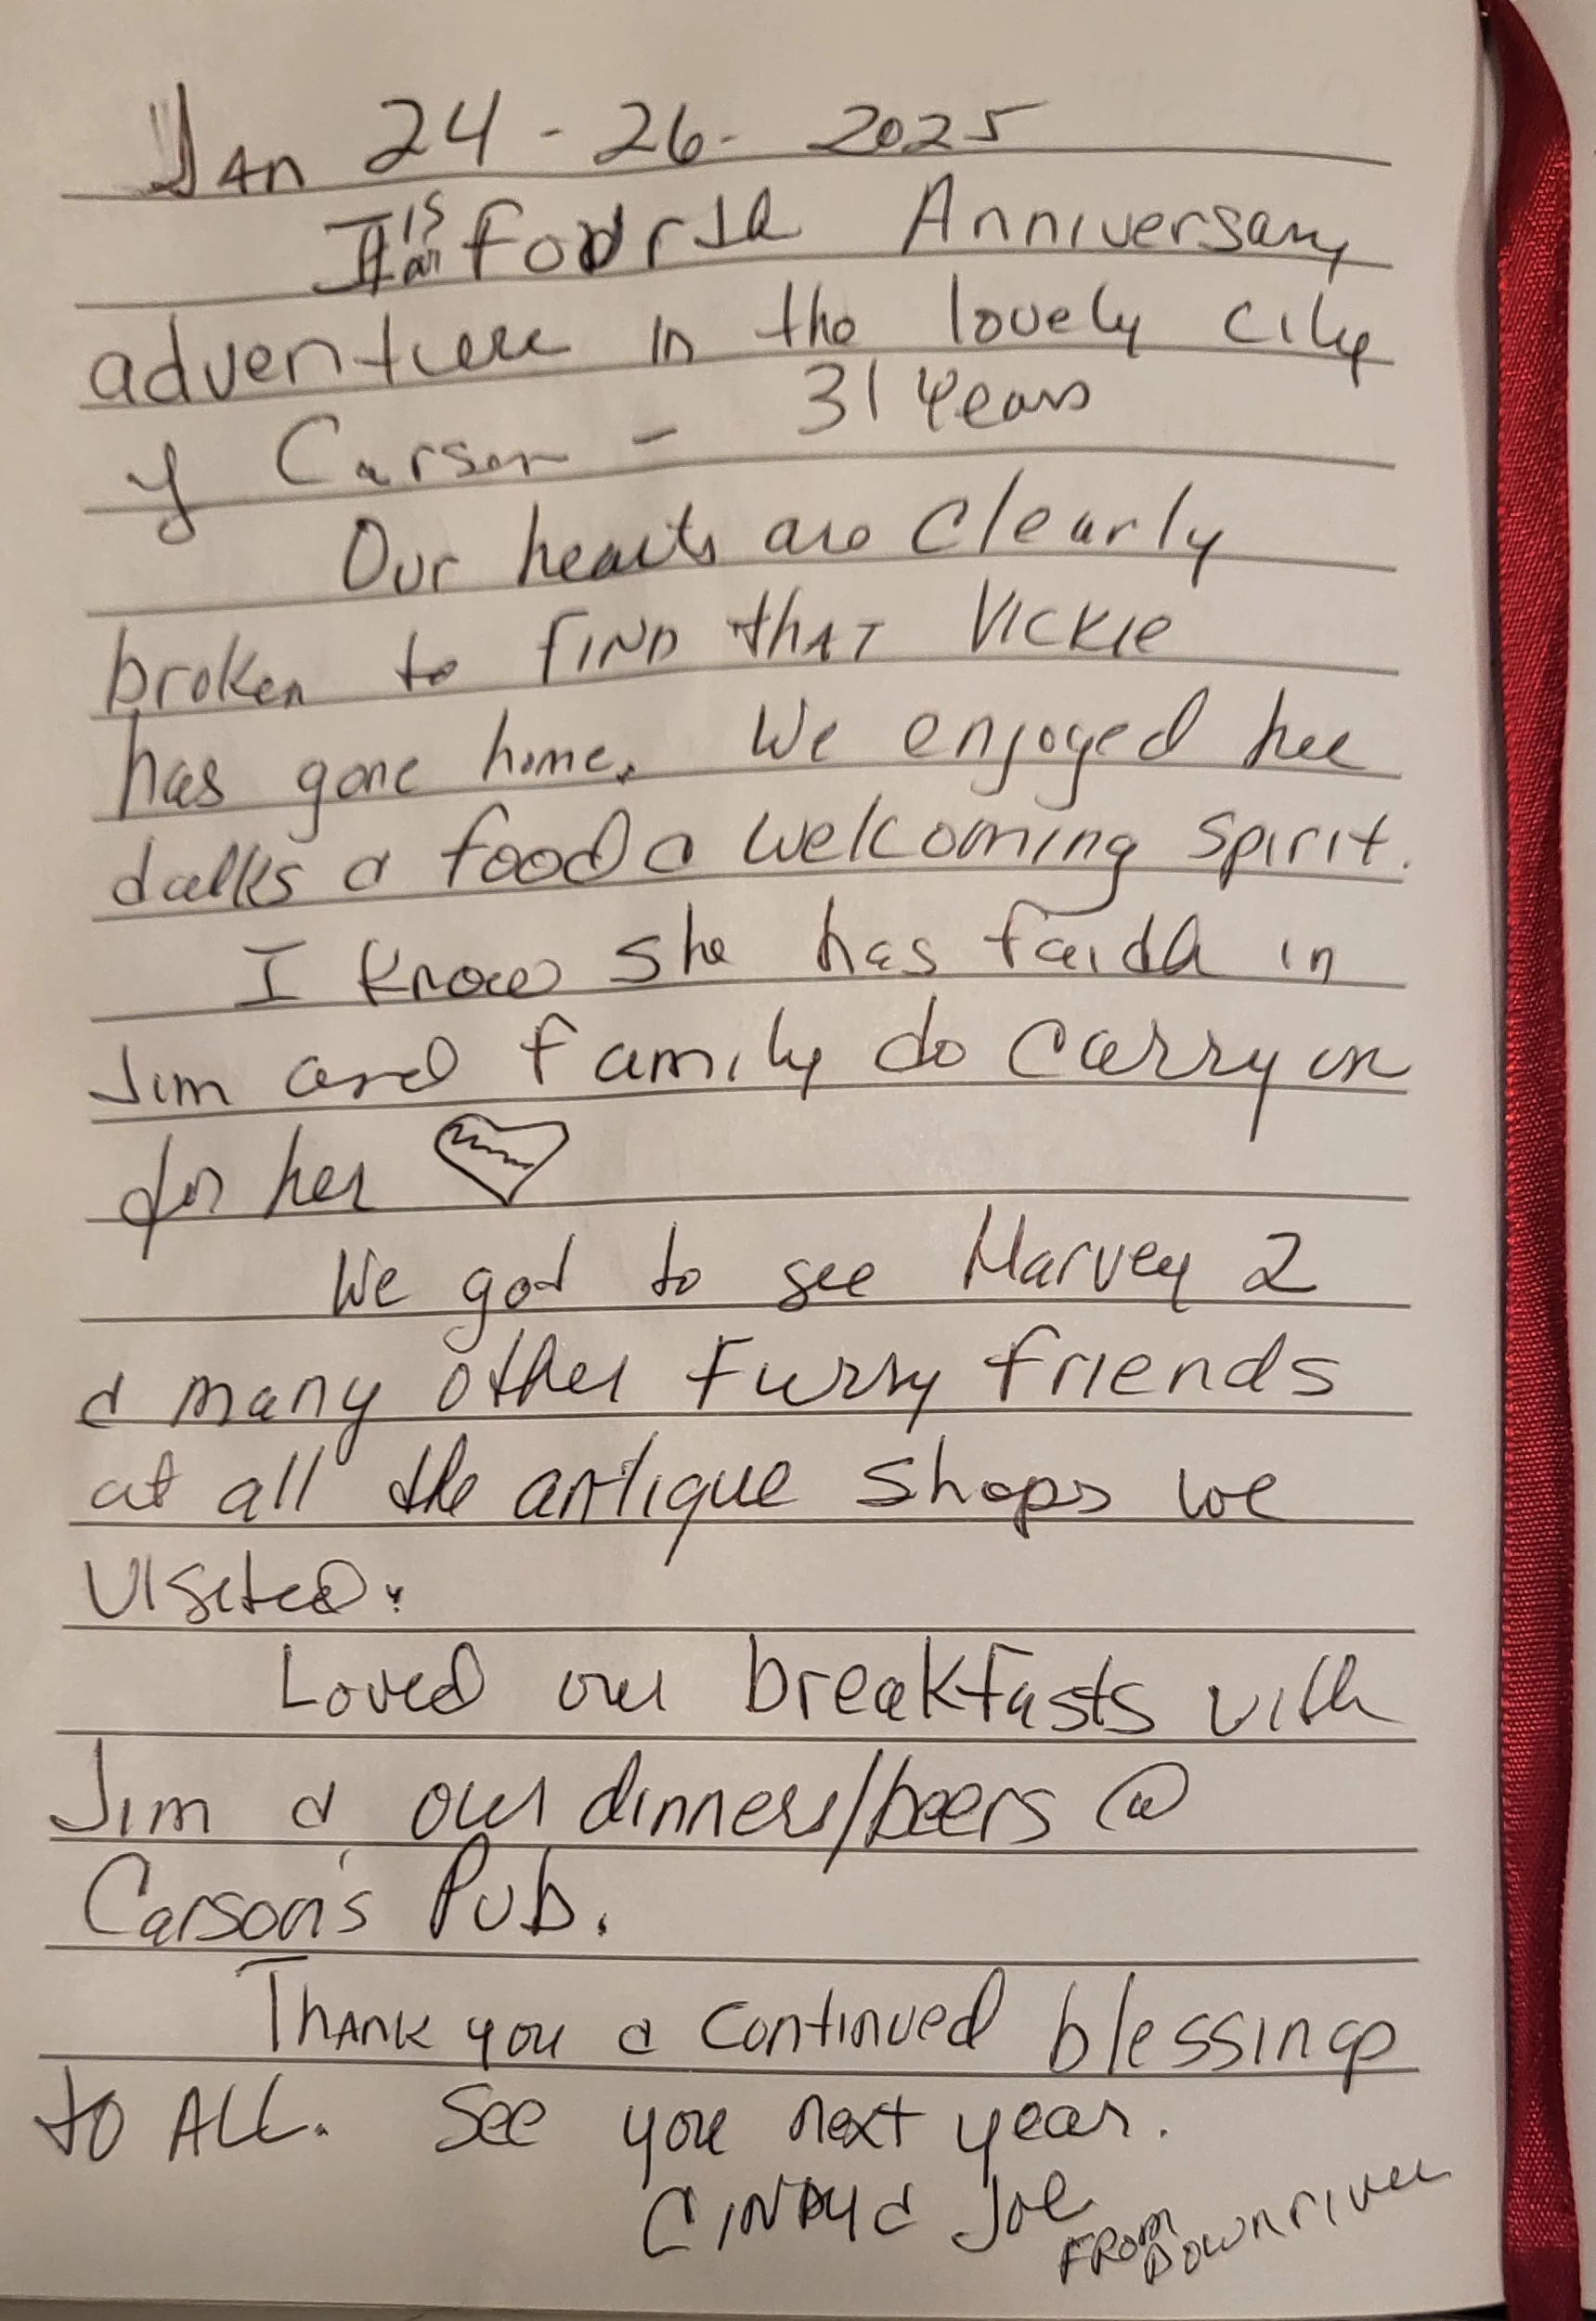 Jan 24 - 26 - 2025
is fourth Anniversary
adventure in the lovely city
of Carson - 31 years
Our hearts are clearly
broken to FIND thAT Vickie
has gone home. We enjoyed her
talks & food & welcoming spirit.
I know she has faith in
Jim and family to carry on
for her
We got to see Harvey 2
& many other furry friends
at all the antique shops we
visited.
Loved our breakfasts with
Jim & our dinners/beers @
Carson's Pub.
Thank you & continued blessings
to ALL. See you next year.
Cindy & Joe
From Downriver